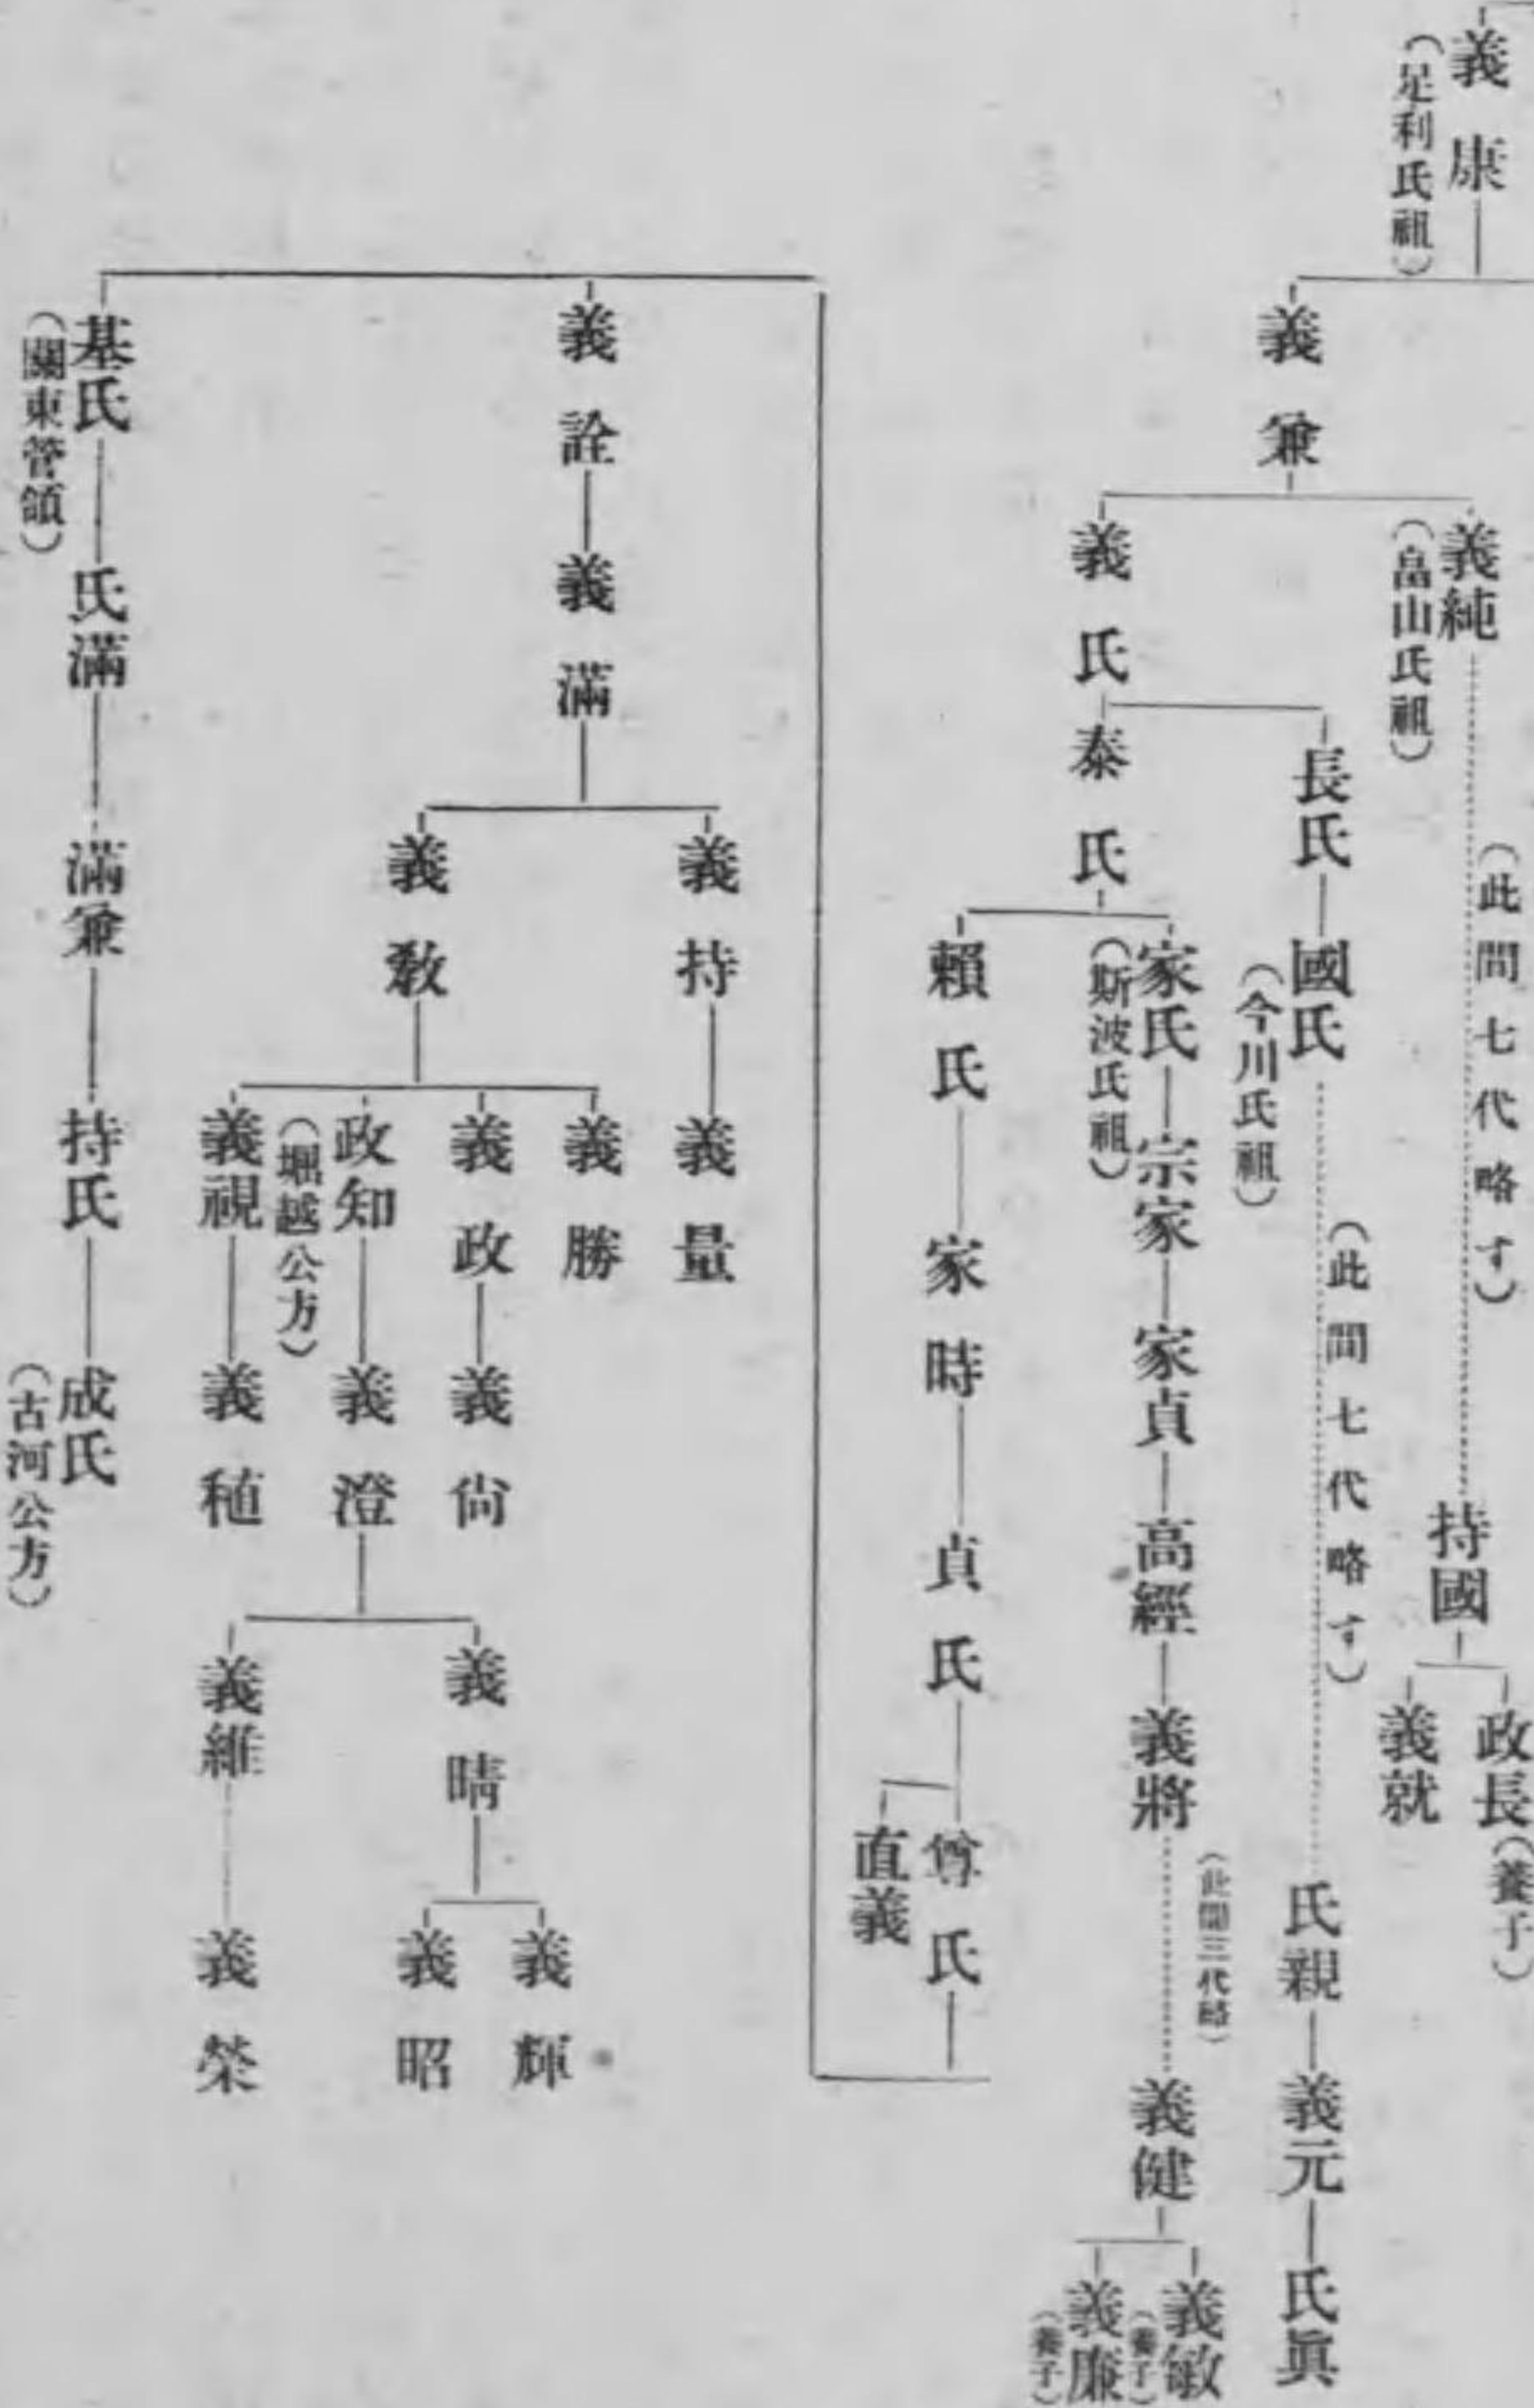 義康
（足利氏祖）
義兼
義純
（畠山氏祖）
（此間七代略す）
持國
政長（養子）
義就
義氏
長氏
國氏
（今川氏祖）
（此間七代略す）
氏親
義元
氏眞
泰氏
家氏
（斯波氏祖）
宗家
家貞
高經
義將
（此間三代略）
義健
義敏
（養子）
義廉
（養子）
賴氏
家時
貞氏
尊氏
直義
義詮
義滿
義持
義量
義敎
義勝
義政
義尙
政知
（堀越公方）
義澄
義晴
義輝
義昭
義維
義榮
義視
義稙
基氏
（關東管領）
氏滿
滿兼
持氏
成氏
（古河公方）